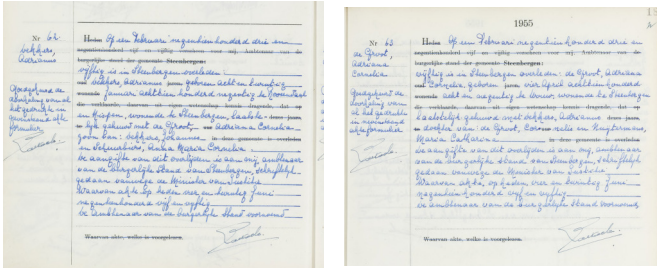 Nr 62
Dekkers,
Adrianus
Goedgekeurd de
doorhaling van al
het gedrukte in
nevenstaand akte-
formulier
Heden Op een Februari negentienhonderd drie en
negentienhonderd vijf en vijftig verscheen voor mij, Ambtenaar van de
burgerlijke stand der gemeente Steenbergen:
vijftig is in Steenbergen overleden:
Dekkers, Adrianus geboren acht en twintig
Januari achttien honderd negentig te
die verklaarde, daarvan uit eigen wetenschap kennis dragende, dat op
en Kruisland, wonende te Steenbergen, laatste-
lijk gehuwd met de Groot, Adriana Cornelia
zoon van Dekkers, Johannes
en Anna Maria Cornelia
De aangifte van dit overlijden is aan mij, ambtenaar
van de Burgerlijke Stand van Steenbergen, schriftelijk
gedaan vanwege de Minister van Justitie
Waarvan akte, op heden vier en twintig Juni
negentienhonderd vijf en vijftig
De Ambtenaar van de Burgerlijke Stand voornoemd
Waarvan akte, welke is voorgelezen.
1955
Nr 63
de Groot,
Adriana
Cornelia
Goedgekeurd de
doorhaling van
al het gedrukte
in nevenstaand
akteformulier
Heden Op een Februari negentienhonderd drie en
negentienhonderd vijf en vijftig verscheen voor mij, Ambtenaar van de
burgerlijke stand der gemeente Steenbergen:
vijftig is in Steenbergen overleden: de Groot, Adriana
Cornelia, geboren vier april achttienhonderd
acht en negentig te
die verklaarde, daarvan uit eigen wetenschap kennis dragende, dat op
laatstelijk gehuwd met Dekkers, Adrianus
dochter van de Groot, Cornelis en
Maria Catharina
De aangifte van dit overlijden is aan mij, ambtenaar
van de Burgerlijke Stand van Steenbergen, schriftelijk
gedaan vanwege de Minister van Justitie
Waarvan akte, op heden vier en twintig Juni
negentienhonderd vijf en vijftig
De Ambtenaar van de Burgerlijke Stand voornoemd,
Waarvan akte, welke is voorgelezen.